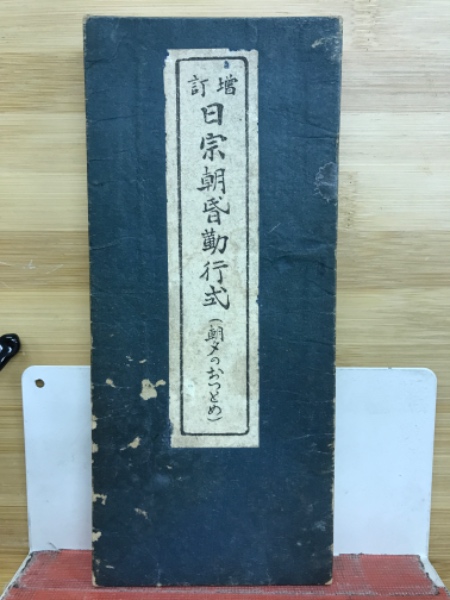 増訂
日宗朝昏勤行式
(朝夕のおつとめ)